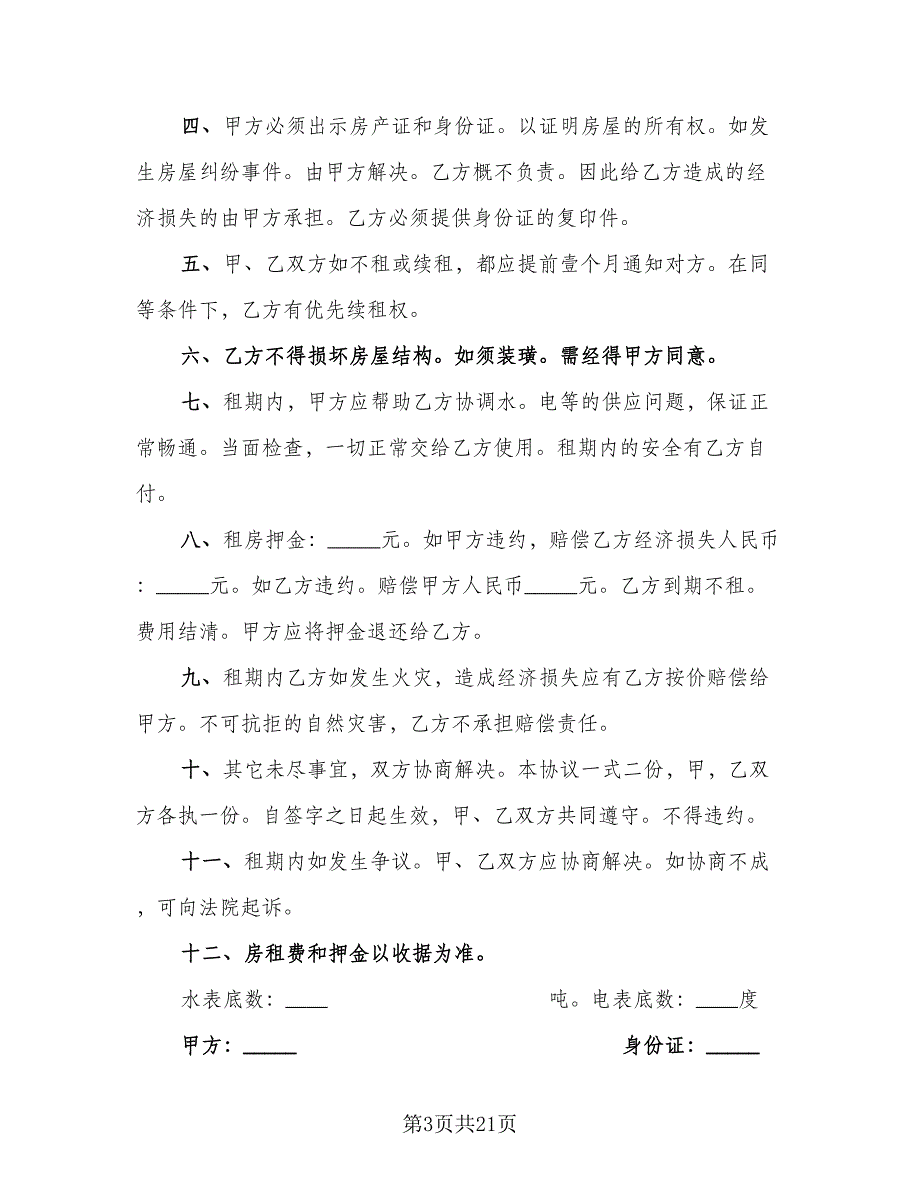 四、甲方必须出示房产证和身份证。以证明房屋的所有权。如发
生房屋纠纷事件。由甲方解决。乙方概不负责。因此给乙方造成的经
济损失的由甲方承担。乙方必须提供身份证的复印件。
五、甲、乙双方如不租或续租，都应提前壹个月通知对方。在同
等条件下，乙方有优先续租权。
六、乙方不得损坏房屋结构。如须装璜。需经得甲方同意。
七、租期内，甲方应帮助乙方协调水。电等的供应问题，保证正
常畅通。当面检查，一切正常交给乙方使用。租期内的安全有乙方自
付。
八、租房押金：_____元。如甲方违约，赔偿乙方经济损失人民币
：_____元。如乙方违约。赔偿甲方人民币_____元。乙方到期不租。
费用结清。甲方应将押金退还给乙方。
九、租期内乙方如发生火灾，造成经济损失应有乙方按价赔偿给
甲方。不可抗拒的自然灾害，乙方不承担赔偿责任。
十、其它未尽事宜，双方协商解决。本协议一式二份，甲，乙双
方各执一份。自签字之日起生效，甲、乙双方共同遵守。不得违约。
十一、租期内如发生争议。甲、乙双方应协商解决。如协商不成
，可向法院起诉。
十二、房租费和押金以收据为准。
水表底数：____ 吨。电表底数：____度
甲方：_____ 身份证：_____
第3页共21页